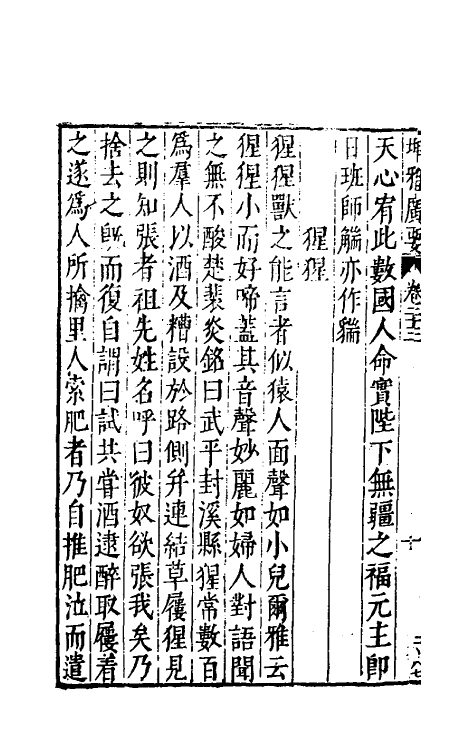 埤雅廣要 卷二十二
天心宥此數國人命實陛下無疆之福元主即
日班師觿亦作㺔
猩猩
猩猩獸之能言者似猿人面聲如小兒爾雅云
猩猩小而好啼蓋其音聲妙麗如婦人對語聞
之無不酸楚裴炎銘曰武平封溪縣猩常數百
爲羣人以酒及糟設於路側并連結草屨猩見
之則知張者祖先姓名呼曰彼奴欲張我矣乃
捨去之既而復自謂曰試共嘗酒逮醉取屨着
之遂爲人所擒里人索肥者乃自推肥泣而遣